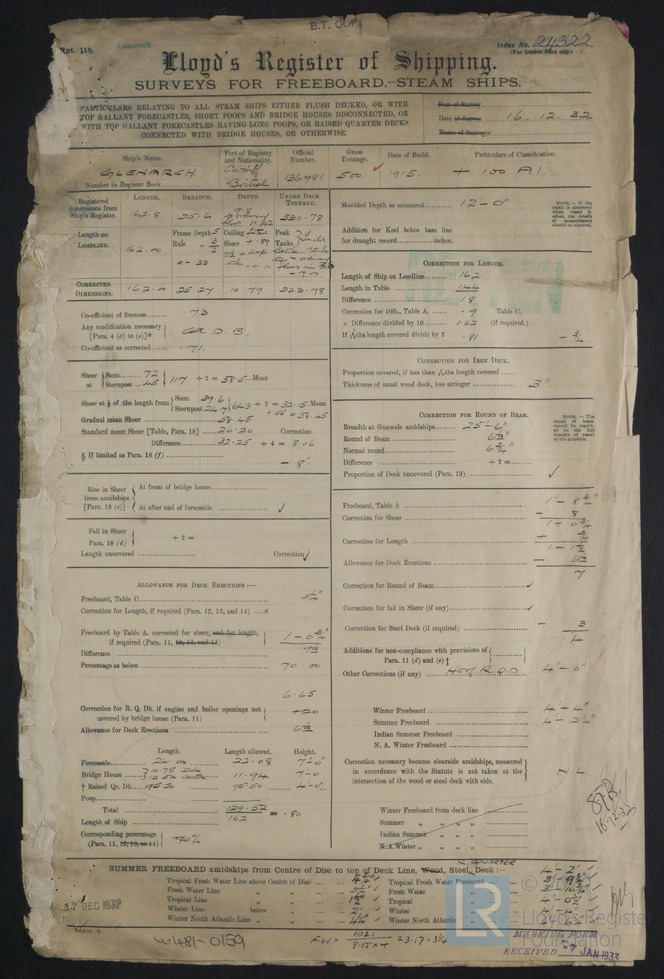 B.T. COPY
Rpt. 11b.
Index No. 24322
(For London Office only.)
Lloyd's Register of Shipping.
SURVEYS FOR FREEBOARD.—STEAM SHIPS.
PARTICULARS RELATING TO ALL STEAM SHIPS EITHER FLUSH DECKED, OR WITH
TOP GALLANT FORECASTLES, SHORT POOPS AND BRIDGE HOUSES DISCONNECTED, OR
WITH TOP GALLANT FORECASTLES HAVING LONG POOPS, OR RAISED QUARTER DECKS
CONNECTED WITH BRIDGE HOUSES, OR OTHERWISE.
Port of Survey
Date of Survey 16.12.32
Name of Surveyor
Ship's Name. Port of Registry and Nationality. Official Number. Gross Tonnage. Date of Build. Particulars of Classification.
GLENARCH Cardiff British 136981 500 1915. + 100 A1.
Number in Register Book
Registered Dimensions from Ship's Register. LENGTH. BREADTH. DEPTH. UNDER DECK TONNAGE.
162.8 25.6 230.78
Length on LOADLINE. 162.00
Frame Depth 5
Rule
CORRECTED DIMENSIONS. 162.0 25.27 10.79 223.78
Moulded Depth as measured 12'-0"
NOTE.—If the depth is measured when vessel is afloat, the details of measurement should be reported.
Addition for Keel below base line
for draught record inches.
CORRECTION FOR LENGTH.
Length of Ship on Loadline 162
Length in Table 144
Difference 18
Correction for 10ft., Table A. .9 Table C.
× Difference divided by 10 1.62 (if required.)
If 6/10ths length covered divide by 2 .81 - 3/4
Co-efficient of fineness .73
Any modification necessary
[Para. 4 (a) to (e)]* D.B.
Co-efficient as corrected .71.
CORRECTION FOR IRON DECK.
Proportion covered, if less than 7/10ths length covered
Thickness of usual wood deck, less stringer 3"
Sheer at Stem 72
Sternpost 45 117 ÷ 2 = 58.5 Mean
Sheer at 1/8 of the length from Stem 39.6
Sternpost 24.7 64.3 ÷ 2 = 32.15 Mean
÷ .55 = 58.45
Gradual mean Sheer 58.45
Standard mean Sheer [Table, Para. 18] 26.20 Correction
Difference 32.25 ÷ 4 = 8.06
§ If limited as Para. 18 (f) - 8"
CORRECTION FOR ROUND OF BEAM.
Breadth at Gunwale amidships 25'-6"
Round of Beam 6 3/4"
Normal round 6 3/4"
Difference ÷ 2 =
Proportion of Deck uncovered (Para. 19) ✓
NOTE.—The round of beam should be reported on the full breadth of vessel at the gunwale.
Rise in Sheer from amidships [Para. 18 (e)]
At front of bridge house
At after end of forecastle ✓
Fall in Sheer
Para. 18 (d) ÷ 2 =
Length uncovered Correction ✓
Freeboard, Table A 1'-8 3/4"
Correction for Sheer - 8
1-0 3/4
Correction for Length + 3/4
1-1 1/2
Allowance for Deck Erections - 6 1/2
7
Correction for Round of Beam ✓
Correction for fall in Sheer (if any) ✓
Correction for Steel Deck (if required) - 3
4
Additions for non-compliance with provisions of
Para. 11 (d) and (e) ‡
Other Corrections (if any) Ht of R.Q.D 4'-0"
ALLOWANCE FOR DECK ERECTIONS :—
Freeboard, Table C
Correction for Length, if required (Para. 12, 13, and 14) ×
Freeboard by Table A. corrected for sheer, and for length,
if required (Para. 11, 12, 13, and 14) 1-0 3/4"
Difference
Percentage as below 70.00
6.65
Correction for R. Q. Dk. if engine and boiler openings not
covered by bridge house (Para. 11) +20
Allowance for Deck Erections 6 1/2
Winter Freeboard 4'-4"
Summer Freeboard 4-2 1/4"
Indian Summer Freeboard
N. A. Winter Freeboard
Correction necessary because clearside amidships, measured
in accordance with the Statute is not taken at the
intersection of the wood or steel deck with side. NIL
Length. Length allowed. Height.
Forecastle 24.00 22.08 7'-0"
Bridge House 10.75 side
12.54 centre 11.94 7-0
† Raised Qr. Dk. 95.50 95.50 4'-0"
Poop
Total 129.52
Length of Ship 162 = .80
Corresponding percentage
(Para. 11, 12, 13, or 14) 70%
Winter Freeboard from deck line
Summer " " " "
Indian Summer " " " "
N. A. Winter " " " "
STR
16.12.32
SUMMER FREEBOARD amidships from Centre of Disc to top of Deck Line, Wood, Steel, Deck :—
R. QUARTER
Tropical Fresh Water Line above Centre of Disc
Fresh Water Line " "
Tropical Line " "
Winter Line below " "
Winter North Atlantic Line " "
Tropical Fresh Water Freeboard
Fresh Water "
Tropical "
Winter "
Winter North Atlantic "
17 DEC 1932
W481-0159
FW =
LR
Lloyd's Register
Foundation
MARKING FORM
RECEIVED JAN 1933